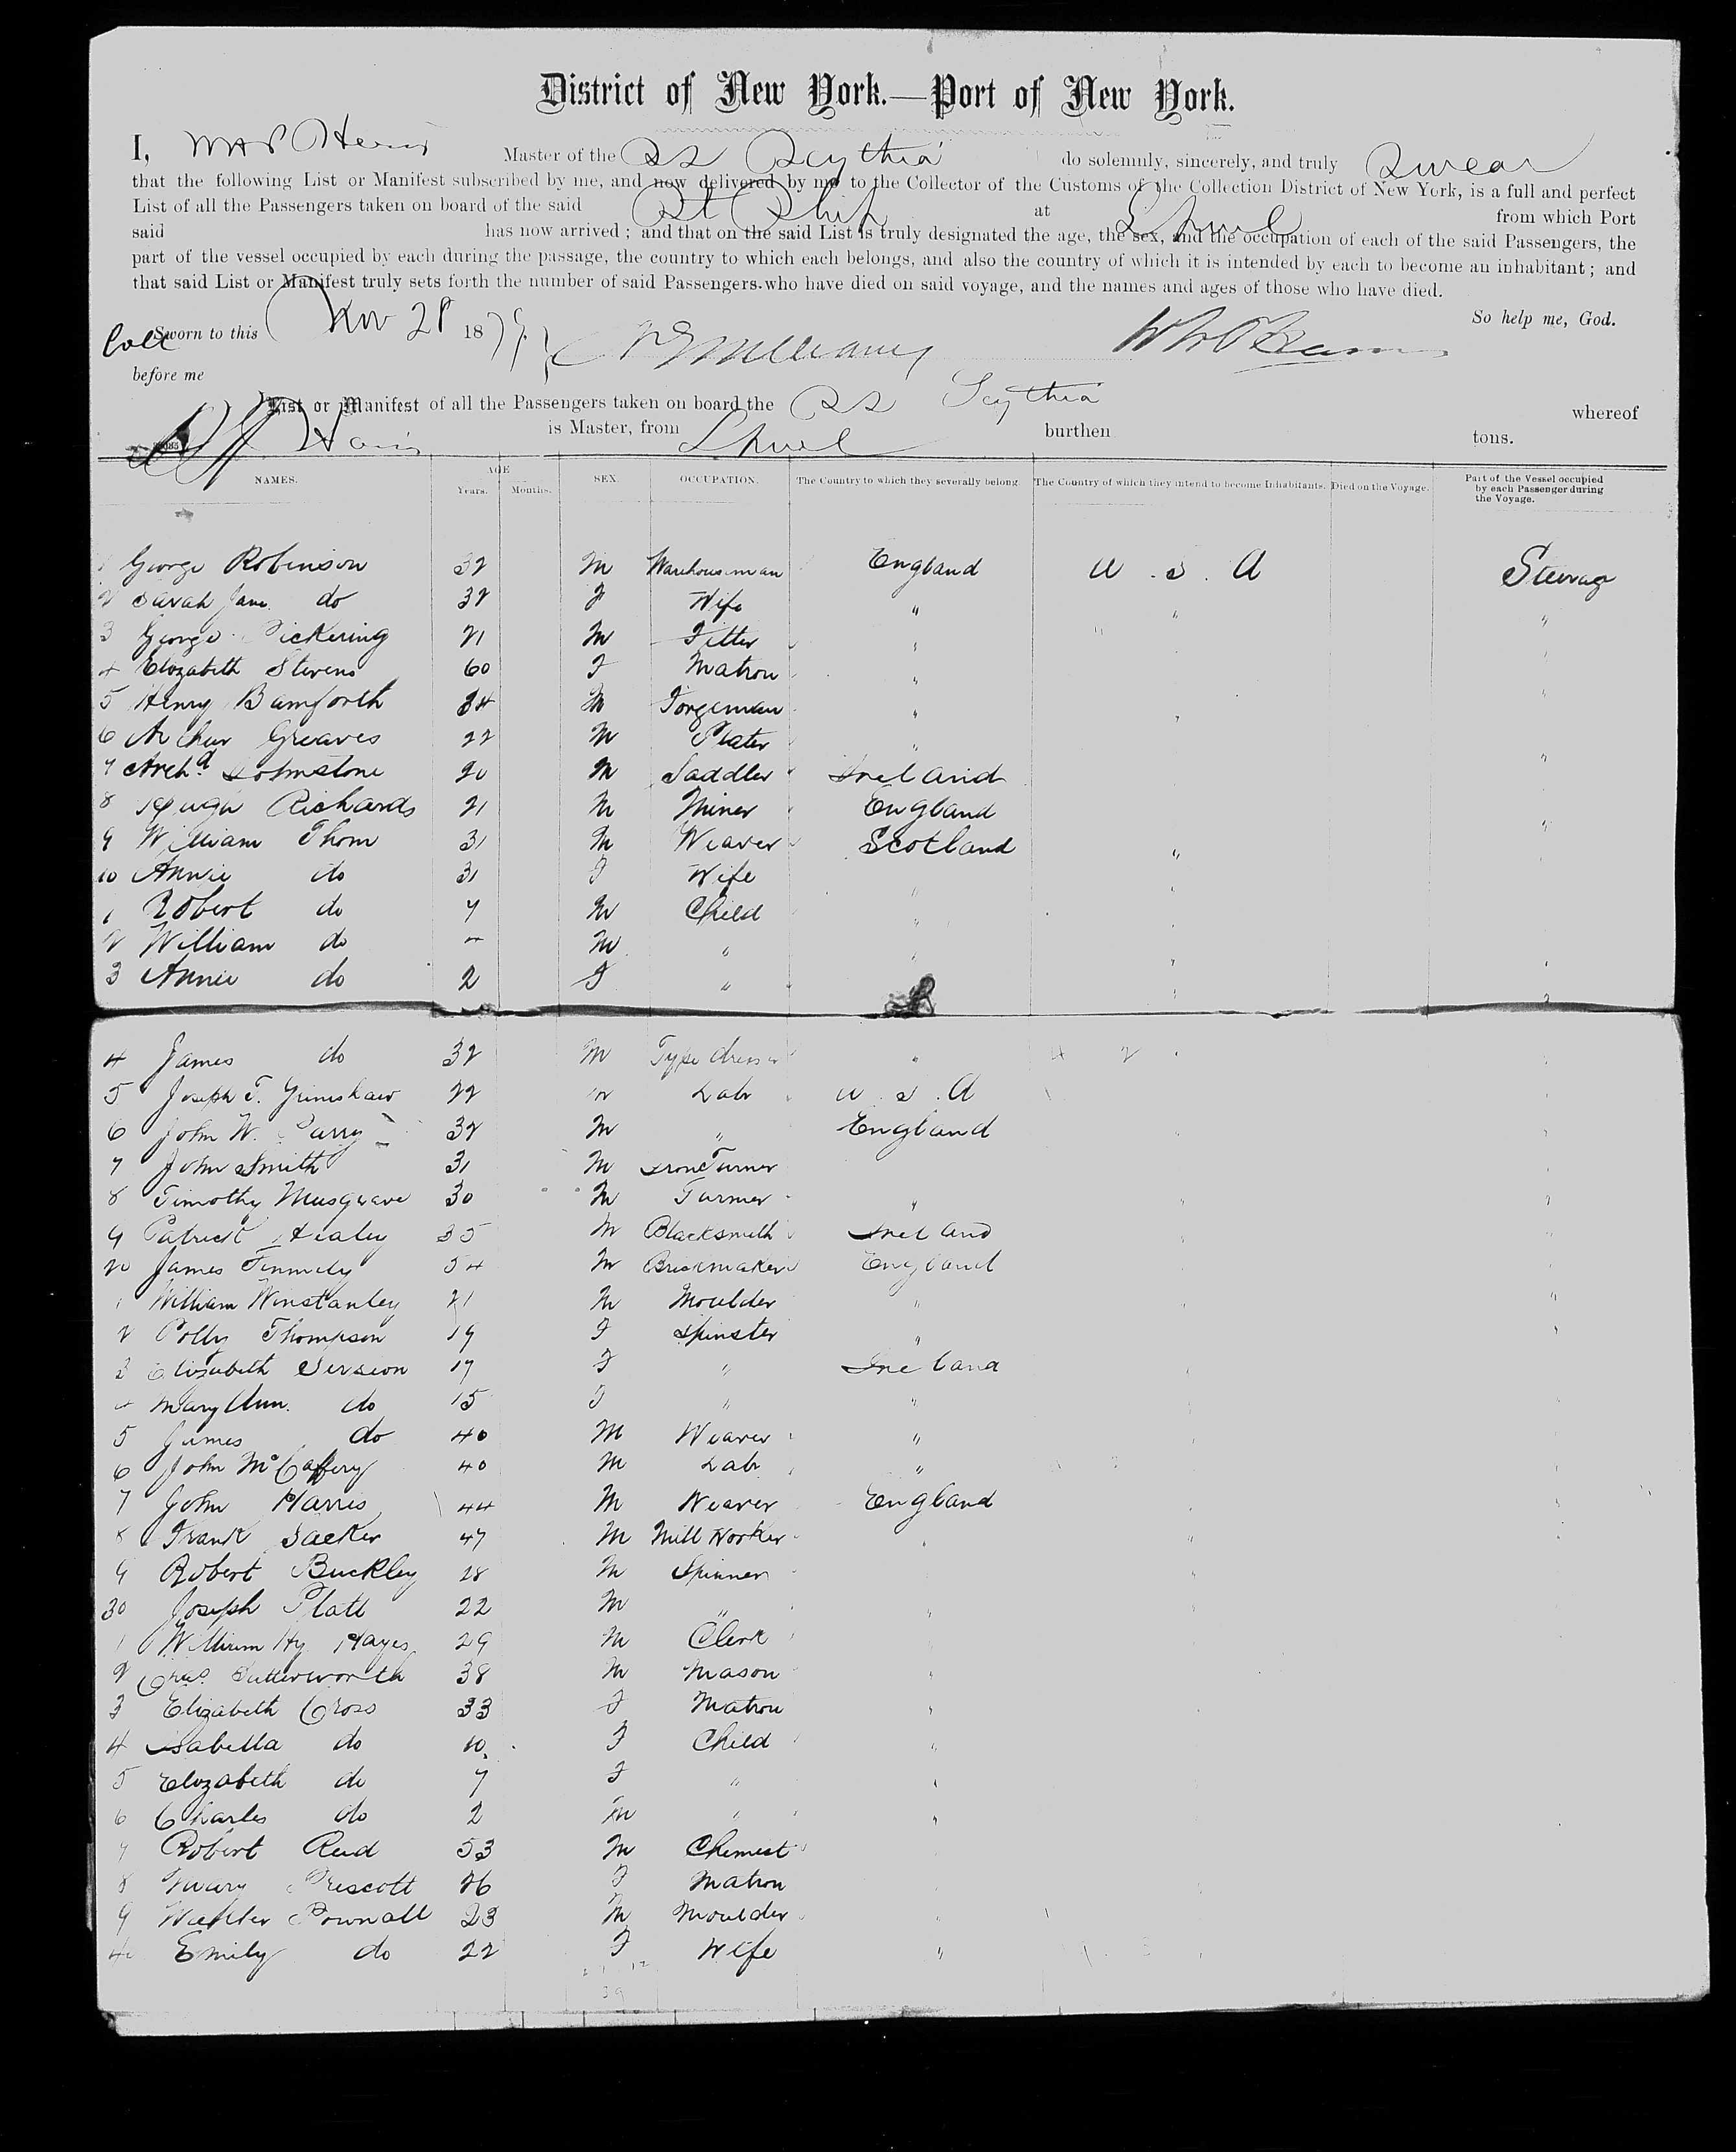 District of New York.—Port of New York.
I, Master of the SS Scythia do solemnly, sincerely, and truly Swear
that the following List or Manifest subscribed by me, and now delivered by me to the Collector of the Customs of the Collection District of New York, is a full and perfect
List of all the Passengers taken on board of the said St Ship at L'pool from which Port
said has now arrived; and that on the said List is truly designated the age, the sex, and the occupation of each of the said Passengers, the
part of the vessel occupied by each during the passage, the country to which each belongs, and also the country of which it is intended by each to become an inhabitant; and
that said List or Manifest truly sets forth the number of said Passengers who have died on said voyage, and the names and ages of those who have died.
So help me, God.
Sworn to this Nov 28 1879
before me
List or Manifest of all the Passengers taken on board the SS Scythia whereof
is Master, from L'pool burthen tons.
NAMES. AGE Years. Months. SEX. OCCUPATION. The Country to which they severally belong. The Country of which they intend to become Inhabitants. Died on the Voyage. Part of the Vessel occupied by each Passenger during the Voyage.
1 George Robinson 32 M Warehouseman England U.S.A Steerage
2 Sarah Jane do 32 F Wife " " "
3 George Pickering 21 M Fitter " "
4 Elizabeth Stevens 60 F Matron "
5 Henry Bamforth 34 M Forgeman "
6 Arthur Greaves 22 M Plater "
7 Archd Johnstone 20 M Saddler Ireland "
8 Hugh Richards 21 M Miner England
9 William Thom 31 M Weaver Scotland "
10 Annie do 31 F Wife "
1 Robert do 7 M Child "
2 William do 4 M " "
3 Annie do 2 F "
4 James do 32 M Type dresser "
5 Joseph T. Grimshaw 22 M Labr U.S.A
6 John W. Parry 32 M " England
7 John Smith 31 M Iron Turner
8 Timothy Musgrave 30 M Farmer "
9 Patrick Healey 35 M Blacksmith Ireland
20 James 54 M Brickmaker England
1 William Winstanley 21 M Moulder "
2 Polly Thompson 19 F Spinster "
3 Elizabeth 17 F " Ireland
4 Mary Ann do 15 F " "
5 James do 40 M Weaver "
6 John McCaffery 40 M Labr "
7 John Harris 44 M Weaver England
8 Frank 47 M Mill Worker "
9 Robert Buckley 28 M Spinner
30 Joseph Platt 22 M " "
1 William Hy Hayes 29 M Clerk
2 Chas. Butterworth 38 M Mason "
3 Elizabeth Cross 33 F Matron "
4 Isabella do 10 F Child "
5 Elizabeth do 7 F " "
6 Charles do 2 M " "
7 Robert Reid 53 M Chemist
8 Mary Prescott 26 F Matron
9 Walter Pownall 23 M Moulder
40 Emily do 22 F Wife "